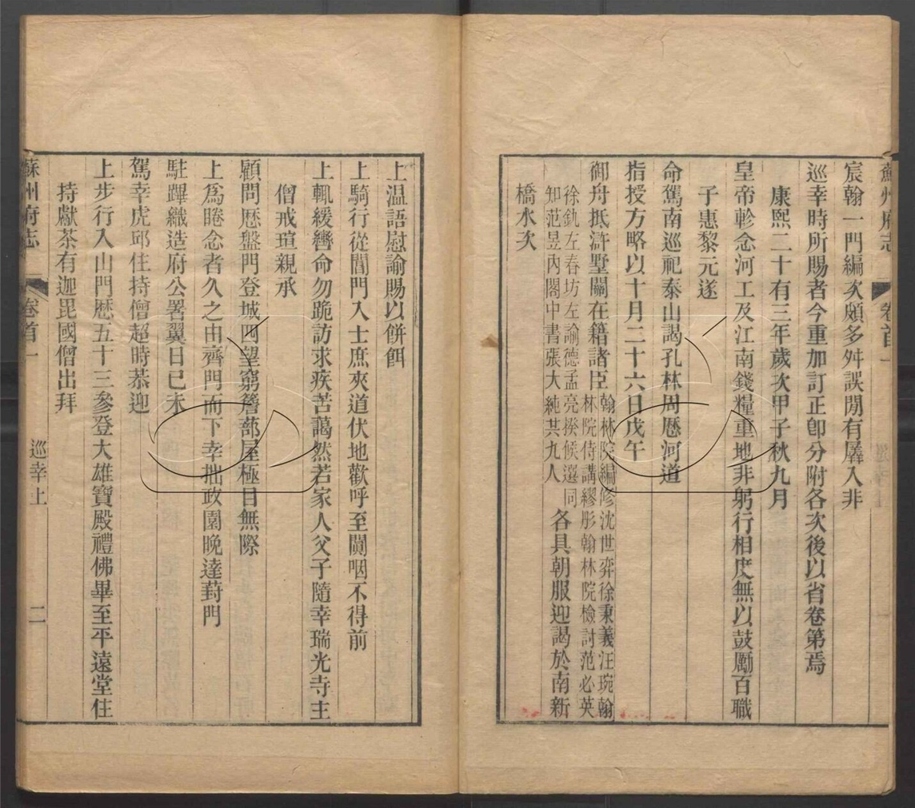 蘇州府志 卷首一
宸翰一門編次頗多舛誤閒有羼入非
巡幸時所賜者今重加訂正卽分附各次後以省卷第焉
康熙二十有三年歲次甲子秋九月
皇帝軫念河工及江南錢糧重地非躬行相度無以鼓勵百職
子惠黎元遂
命駕南巡祀泰山謁孔林周厯河道
指授方略以十月二十六日戊午
御舟抵滸墅關在籍諸臣
翰林院編修沈世奕徐秉義汪琬翰
林院侍講繆彤翰林院檢討范必英
徐釚左春坊左諭德孟亮揆候選同
知范昱內閣中書張大純共九人
各具朝服迎謁於南新
橋水次
上溫語慰諭賜以餠餌
上騎行從閶門入士庶夾道伏地歡呼至闐咽不得前
上輒緩轡命勿跪訪求疾苦藹然若家人父子隨幸瑞光寺主
僧戒瑄親承
顧問厯盤門登城四望窮簷蔀屋極目無際
上爲睠念者久之由齊門而下幸拙政園晚達葑門
駐蹕織造府公署翼日巳未
駕幸虎邱住持僧超時恭迎
上步行入山門厯五十三參登大雄寶殿禮佛畢至平遠堂住
持獻茶有迦毘國僧出拜
蘇州府志 卷首一 巡幸上 二